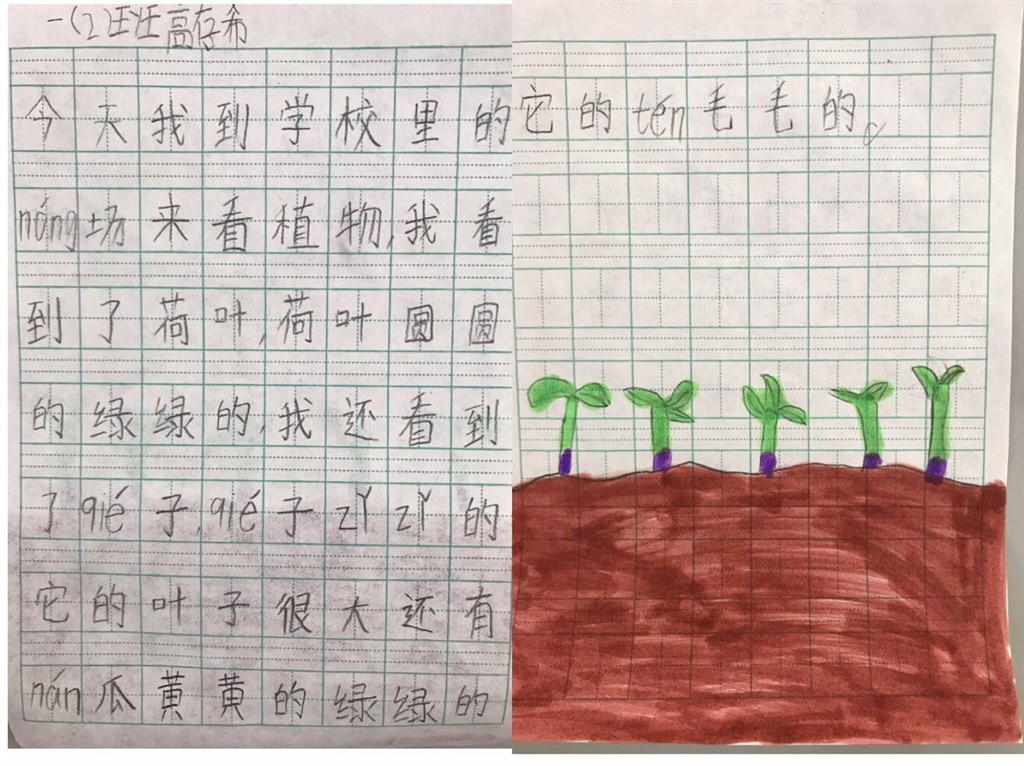 一(2)班高存希
今天我到学校里的
náng场来看植物,我看
到了荷叶,荷叶圆圆
的绿绿的,我还看到
了qié子,qié子zǐ zǐ的
它的叶子很大还有
nán瓜黄黄的绿绿的
它的tén毛毛的。